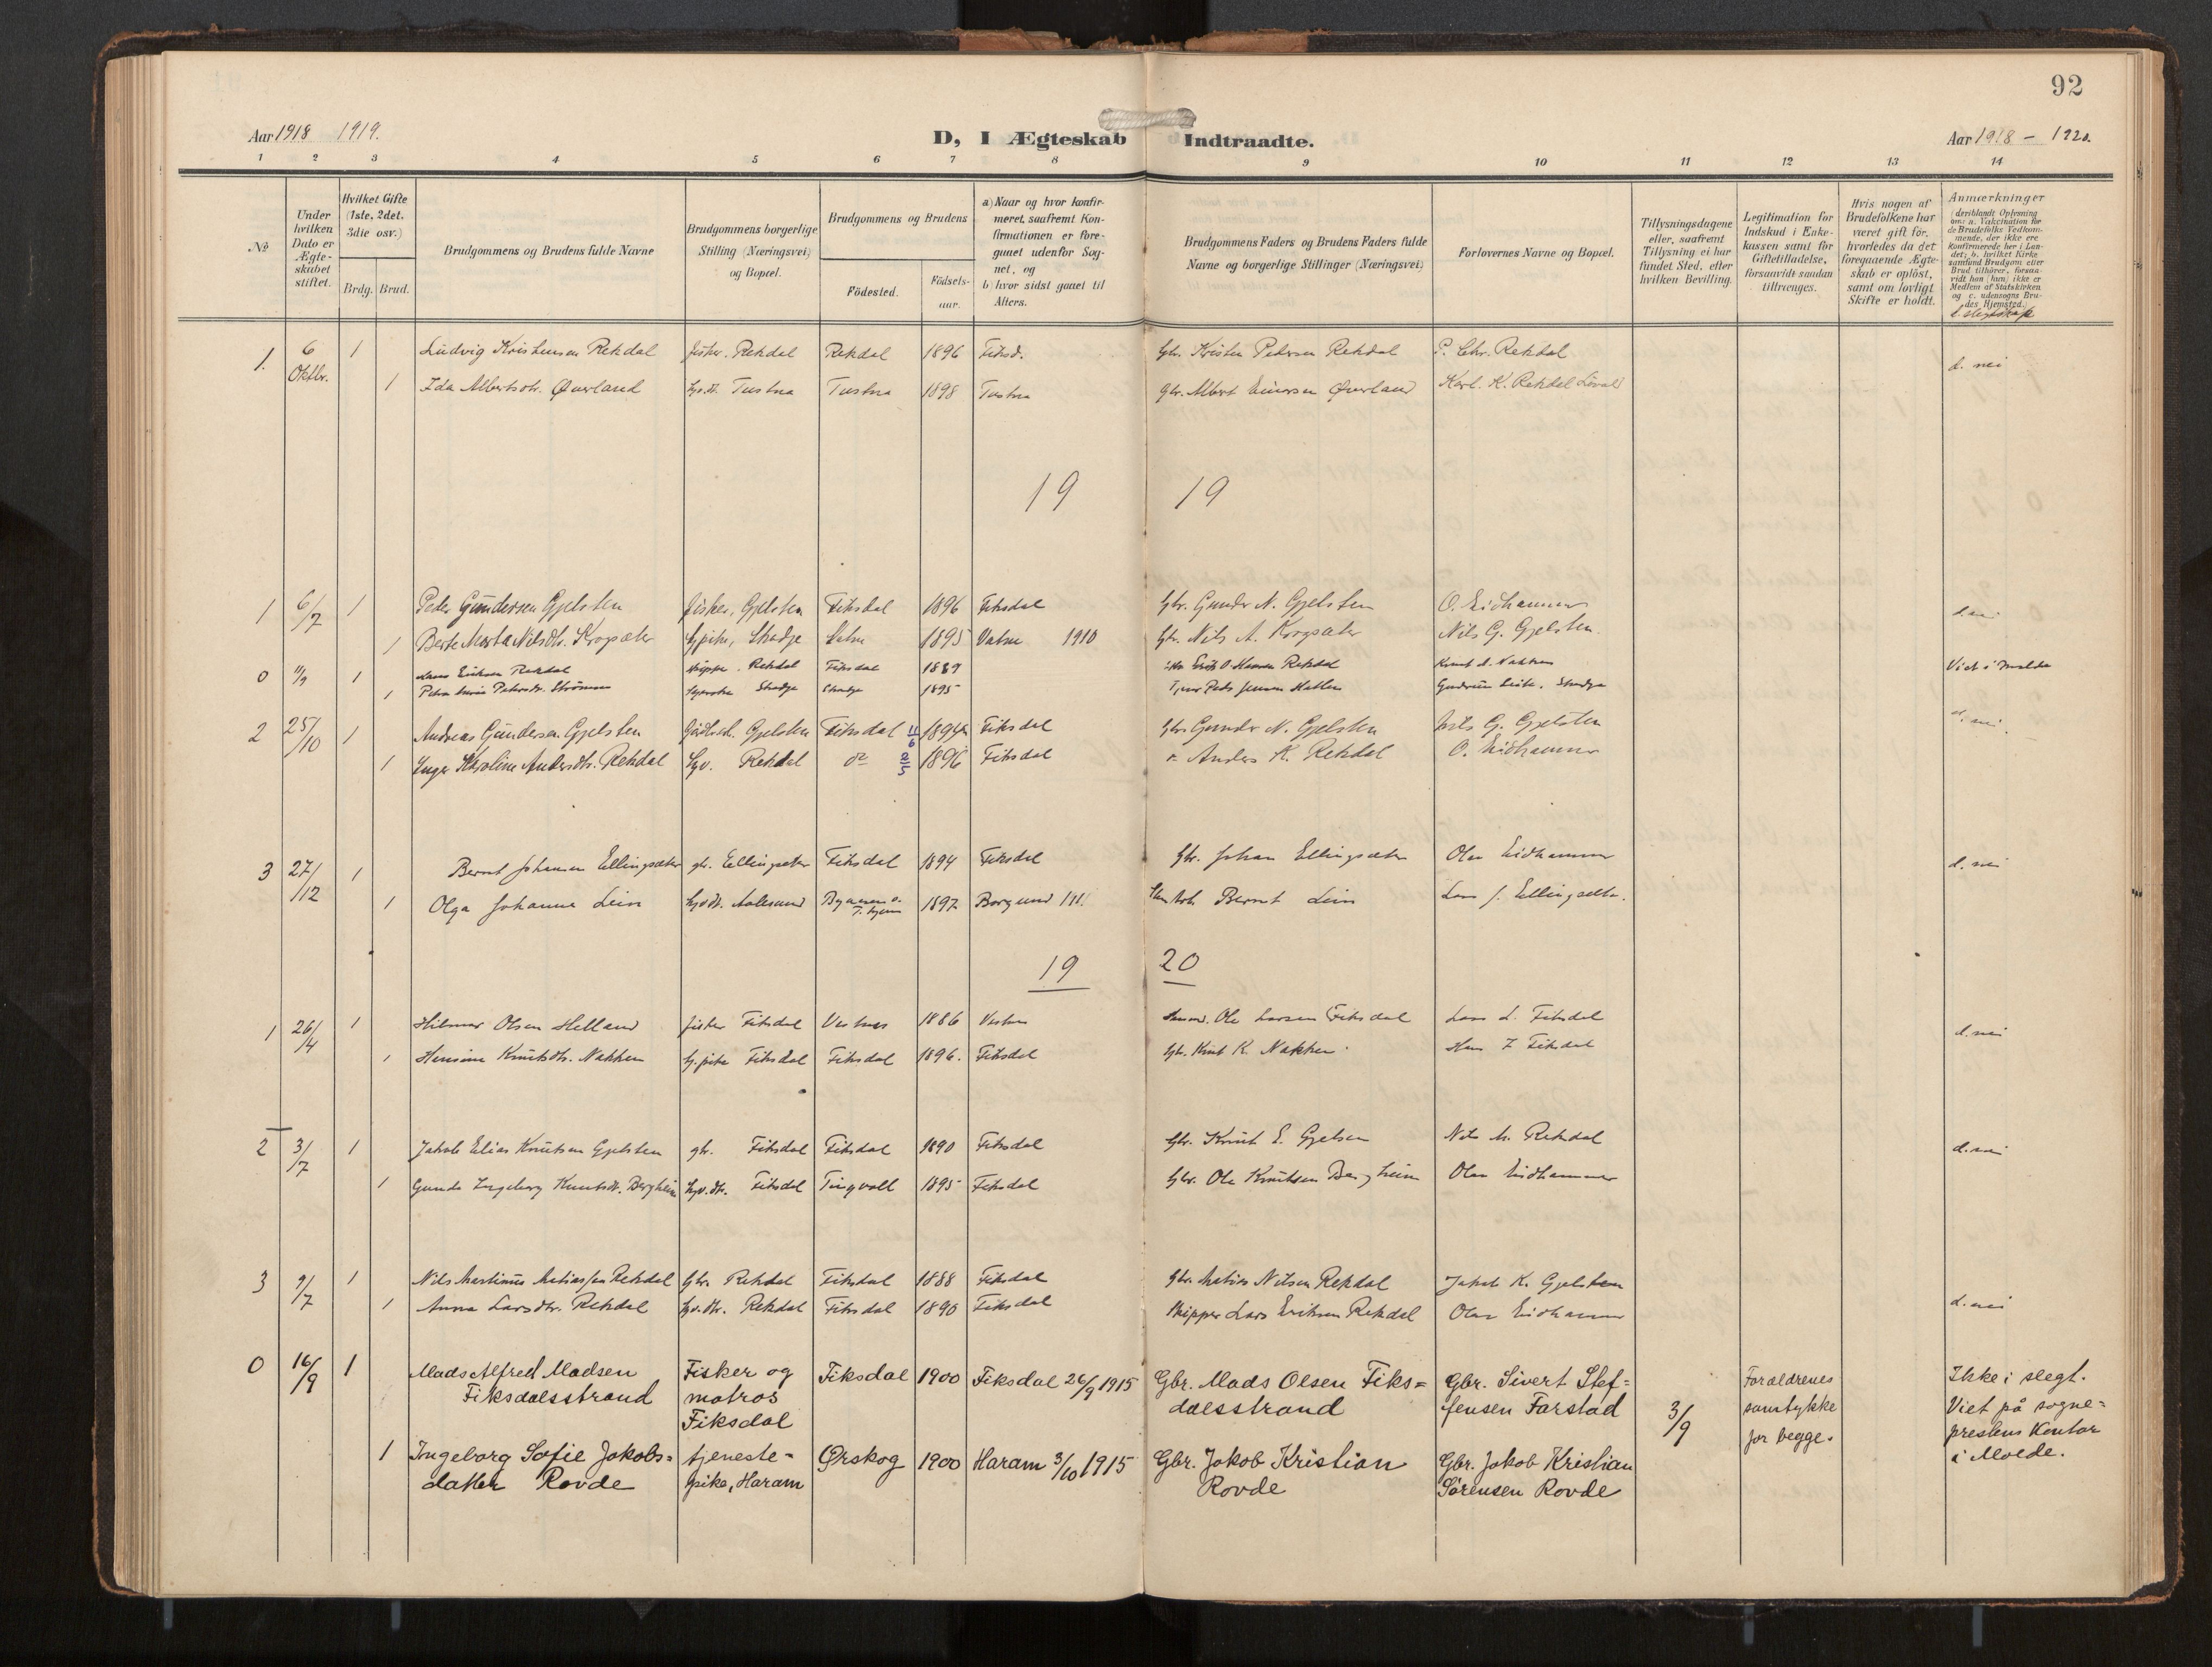 92
Aar 1918 1919.
D, I Ægteskab Indtraadte.
Aar 1918 – 1920.
1 2 3 4 5 6 7 8 9 10 11 12 13 14
№
Under hvilken Dato er Ægteskabet stiftet.
Hvilket Gifte (1ste, 2det, 3die osv.)
Brdg. Brud.
Brudgommens og Brudens fulde Navne
Brudgommens borgerlige Stilling (Næringsvei) og Bopæl.
Brudgommens og Brudens
Födested.
Födsels-aar.
a) Naar og hvor konfirmeret, saafremt Konfirmationen er foregaaet udenfor Sognet, og
b) hvor sidst gaaet til Alters.
Brudgommens Faders og Brudens Faders fulde Navne og borgerlige Stillinger (Næringsvei)
Forlovernes Navne og Bopæl.
Tillysningsdagene eller, saafremt Tillysning ei har fundet Sted, efter hvilken Bevilling.
Legitimation for Indskud i Enkekassen samt for Giftetilladelse, forsaavidt saadan tiltrænges.
Hvis nogen af Brudefolkene har været gift för, hvorledes da det foregaaende Ægteskab er oplöst, samt om lovligt Skifte er holdt.
Anmærkninger
(deriblandt Oplysning om: a. Vakcination for de Brudefolks Vedkommende, der ikke ere Konfirmerede her i Landet; b. hvilket Kirkesamfund Brudgom eller Brud tilhörer, forsaavidt han (hun) ikke er Medlem af Statskirken og c. udensogns Brudes Hjemsted.)
d. slegtskap
1. 6 Oktbr. 1 Ludvig Kristensen Rekdal fisker. Rekdal Rekdal 1896 Fiksd. Gbr. Kristen Pedersen Rekdal P. Chr. Rekdal d. nei
1 Ida Albertsdtr. Øverland Tustna Tustna 1898 Tustna Gbr. Albert Einarsen Øverland Karl. K. Rekdal
19 19
1 6/7 1 Peder Gundersen Gjelsten fisker, Gjelsten Fiksdal 1896 Fiksdal Gbr. Gunder N. Gjelsten O. Eidhammer d. nei
1 Berte Marta Nilsdtr. Krogsæter Skodje Vatne 1895 Vatne 1910 Gbr. Nils A. Krogsæter Nils G. Gjelsten.
0 11/9 1 Lars Eriksen Rekdal skipper. Rekdal Fiksdal 1889 Rekdal Knut L. Nakken Viet i Molde
1 Petra Pedersdtr. Strömmen Skodje Skodje 1895 Skodje
2 25/10 1 Andreas Gundersen Gjelsten Gjelsten Fiksdal 1894 Fiksdal Gbr. Gunder N. Gjelsten Nils G. Gjelsten d. nei.
1 Inger Karoline Andersdtr. Rekdal Rekdal do 1896 Fiksdal Anders K. Rekdal O. Eidhammer
3 27/12 1 Bernt Johansen Ellingsæter gbr. Ellingsæter Fiksdal 1894 Fiksdal Gbr. Johan Ellingsæter Olav Eidhammer d. nei
1 Olga Johanne Lein Aalesund 1897 Borgund Bernt Lein Lars J. Ellingsæter.
19 20
1 26/4 1 Hilmar Olsen Helland fisker Fiksdal Vestnes 1886 Vestnes Ole Larsen Fiksdal Lars L. Fiksdal d. nei
1 Hensine Knutsdtr. Nakken Fiksdal Fiksdal 1896. Fiksdal Gbr. Knut K. Nakken.
2 3/7 1 Jakob Elias Knutsen Gjelsten gbr. Fiksdal Fiksdal 1890 Fiksdal Gbr. Knut E. Gjelsten Nils M. Rekdal d. nei
1 Gunda Ingeborg Knutsdt. Bergheim Fiksdal Tingvoll 1895 Fiksdal Gbr. Ole Knutsen Bergheim Olav Eidhammer
3 9/7 1 Nils Martinus Matiassen Rekdal Gbr. Rekdal Fiksdal 1888 Fiksdal Gbr. Matias Nilsen Rekdal Jakob K. Gjelsten d. nei
1 Anna Larsdtr. Rekdal Rekdal Fiksdal 1890 Fiksdal Skipper Lars Eriksen Rekdal Olav Eidhammer
0 16/9 1 Mads Alfred Madsen Fiksdalsstrand Fisker og matros Fiksdal Fiksdal 1900 Fiksdal 26/9 1915 Gbr. Mads Olsen Fiks=dalsstrand Gbr. Sivert Stef=fensen Farstad 3/9 Foraldrenes samtykke for begge. Ikke i slegt. Viet på sogne=prestens Kontor i Molde.
1 Ingeborg Sofie Jakobs=datter Rovde tjeneste=pike, Haram Ørskog 1900 Haram 3/10 1915 Gbr. Jakob Kristian Rovde Gbr. Jakob Kristian Sörensen Rovde